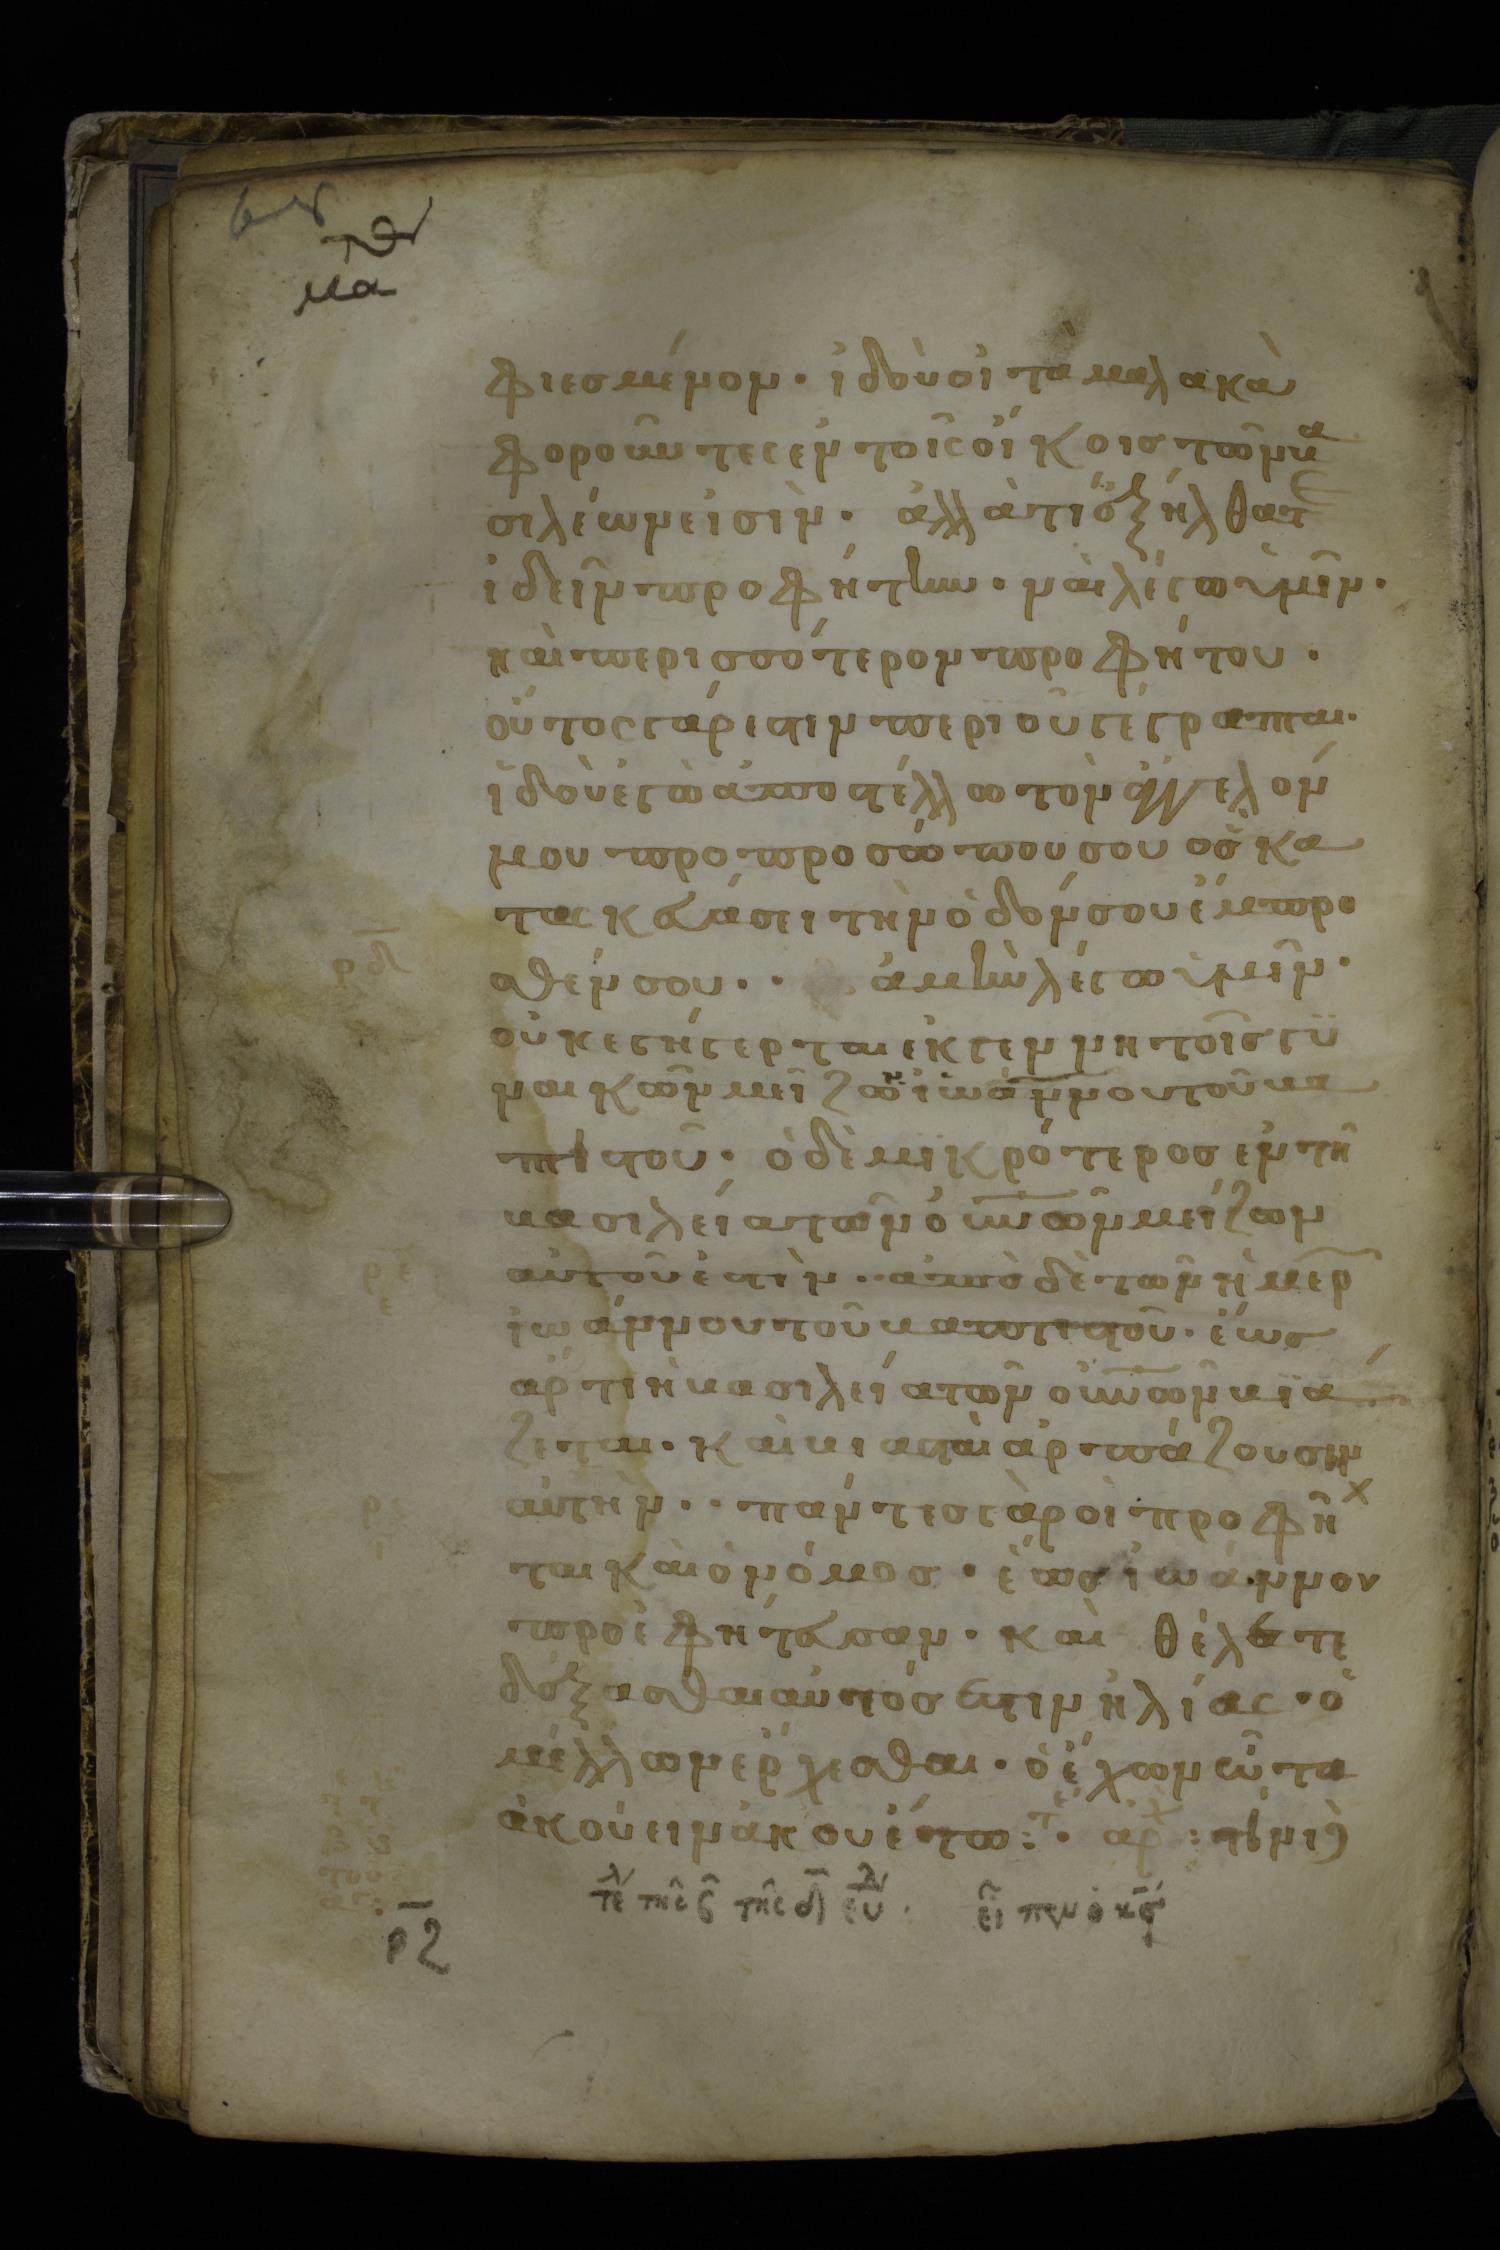 μα
φιεσμένον· ἰδοὺ οἱ τὰ μαλακὰ
φοροῦντες ἐν τοῖς οἴκοις τῶν βα
σιλέων εἰσὶν· ἀλλὰ τί ἐξήλθατε
ἰδεῖν προφήτην· ναὶ λέγω ὑμῖν·
καὶ περισσότερον προφήτου·
οὗτος γάρ ἐστιν περὶ οὗ γέγραπται·
ἰδοὺ ἐγὼ ἀποστέλλω τὸν ἄγγελόν
μου πρὸ προσώπου σου ὃς κα
τασκευάσει τὴν ὁδόν σου ἔμπρο
σθέν σου·· ἀμὴν λέγω ὑμῖν·
οὐκ ἐγήγερται ἐν γεννητοῖς γυ
ναικῶν μείζων ἰωάννου τοῦ βα
πτιστοῦ· ὁ δὲ μικρότερος ἐν τῇ
βασιλείᾳ τῶν οὐνῶν μείζων
αὐτοῦ ἐστὶν·· ἀπὸ δὲ τῶν ἡμερ
ἰωάννου τοῦ βαπτιστοῦ· ἕως
ἄρτι ἡ βασιλεία τῶν οὐνῶν βιά
ζεται· καὶ βιασταὶ ἁρπάζουσιν
αὐτὴν·· πάντες γὰρ οἱ προφῆ
ται καὶ ὁ νόμος· ἕως ἰωάννου
προεφήτευσαν· καὶ εἰ θέλετε
δέξασθαι αὐτός ἐστιν ἠλίας· ὁ
μέλλων ἔρχεσθαι· ὁ ἔχων ὦτα
ἀκούειν ἀκουέτω:
τε τῆς ϛ τῆς δ ευ. εἶπεν ὁ κς